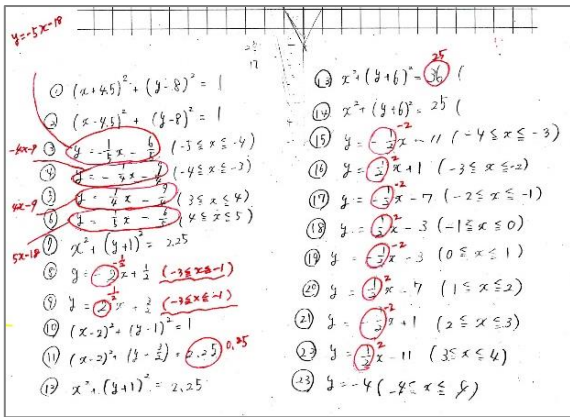 y=-5x-18
① (x+4.5)² + (y-8)² = 1
② (x-4.5)² + (y-8)² = 1
③ y = -1/5 x - 6/5 (-5 ≦ x ≦ -4)
-4x-9
④ y = -1/4 x - 9/4 (-4 ≦ x ≦ -3)
4x-9
⑤ y = 1/4 x - 9/4 (3 ≦ x ≦ 4)
⑥ y = 1/5 x - 6/5 (4 ≦ x ≦ 5)
5x-18
⑦ x² + (y+1)² = 2.25
⑧ y = -2x + 1/2 (-3 ≦ x ≦ -1)
-1/2
⑨ y = 2x + 1/2 (-3 ≦ x ≦ -1)
1/2
⑩ (x-2)² + (y-1)² = 1
⑪ (x-2)² + (y-3/2) = 2.25 0.25
⑫ x² + (y+1)² = 2.25
25
⑬ x² + (y+6)² = 36 (
⑭ x² + (y+6)² = 25 (
⑮ y = -1/2 x - 11 (-4 ≦ x ≦ -3)
-2
⑯ y = 1/2 x + 1 (-3 ≦ x ≦ -2)
2
⑰ y = -1/2 x - 7 (-2 ≦ x ≦ -1)
-2
⑱ y = 1/2 x - 3 (-1 ≦ x ≦ 0)
2
⑲ y = -1/2 x - 3 (0 ≦ x ≦ 1)
-2
⑳ y = 1/2 x - 7 (1 ≦ x ≦ 2)
2
㉑ y = -1/2 x + 1 (2 ≦ x ≦ 3)
-2
㉒ y = 1/2 x - 11 (3 ≦ x ≦ 4)
2
㉓ y = -4 (-4 ≦ x ≦